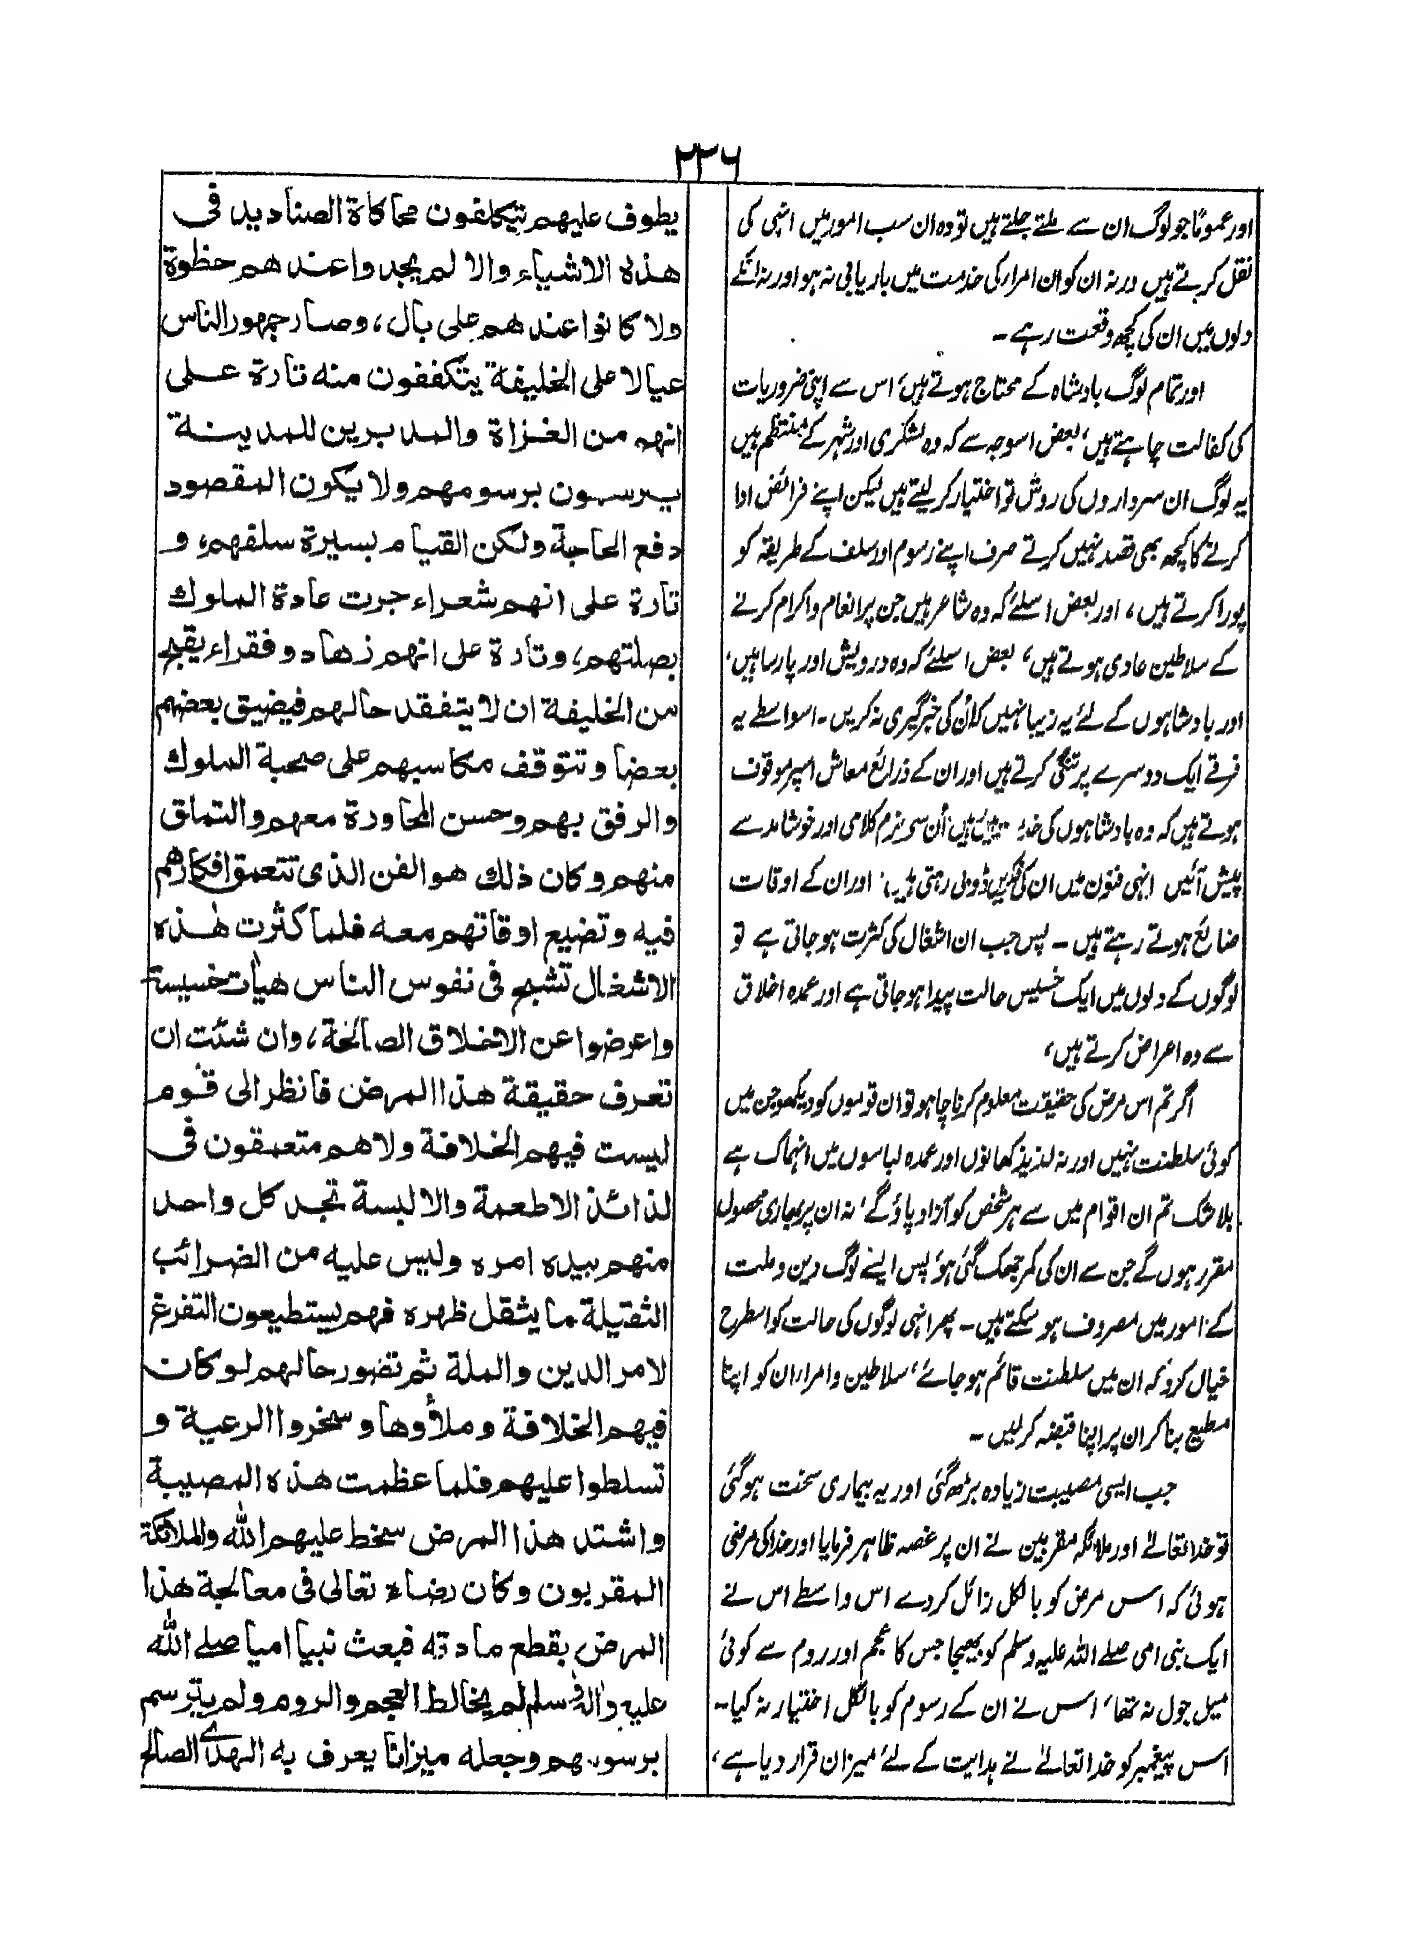 ۲۳۶
اور عموماً جو لوگ ان سے ملتے جلتے ہیں تو وہ ان سب امور میں انہی کی
نقل کرتے ہیں ورنہ ان کو ان امراء کی خدمت میں باریابی نہ ہو اور نہ انکے
دلوں میں ان کی کچھ وقعت رہے ۔
اور تمام لوگ بادشاہ کے محتاج ہوتے ہیں، اس سے اپنی ضروریات
کی کفالت چاہتے ہیں، بعض اسوجہ سے کہ وہ لشکری اور شہر کے منتظم ہیں
یہ لوگ ان سرداروں کی روش تو اختیار کر لیتے ہیں لیکن اپنے فرائض ادا
کرنے کا کچھ بھی قصد نہیں کرتے صرف اپنے رسوم اور سلف کے طریقہ کو
پورا کرتے ہیں، اور بعض اسلئے کہ وہ شاعر ہیں جن پر انعام و اکرام کرنے
کے سلاطین عادی ہوتے ہیں، بعض اسلئے کہ وہ درویش اور پارسا ہیں،
اور بادشاہوں کے لئے یہ زیبا نہیں کہ ان کی خبر گیری نہ کریں ۔ اسواسطے یہ
فرقے ایک دوسرے پر تنگی کرتے ہیں اور ان کے ذرائع معاش اسپر موقوف
ہوتے ہیں کہ وہ بادشاہوں کی میں ہیں، اُن سی نرم کلامی اور خوشامد سے
پیش آئیں انہی فنون میں ان کی فکریں ڈوبی رہتی ہیں، اور ان کے اوقات
ضائع ہوتے رہتے ہیں ۔ پس جب ان اشغال کی کثرت ہو جاتی ہے تو
لوگوں کے دلوں میں ایک خسیس حالت پیدا ہو جاتی ہے اور عمدہ اخلاق
سے وہ اعراض کرتے ہیں،
اگر تم اس مرض کی حقیقت معلوم کرنا چاہو تو ان قوموں کو دیکھو جن میں
کوئی سلطنت نہیں اور نہ لذیذ کھانوں اور عمدہ لباسوں میں انہماک ہے
بلا شک تم ان اقوام میں سے ہر شخص کو آزاد پاؤ گے، نہ ان پر بھاری محصول
مقرر ہوں گے جن سے ان کی کمر جھک گئی ہو، پس ایسے لوگ دین و ملت
کے امور میں مصروف ہو سکتے ہیں ۔ پھر انہی لوگوں کی حالت کو اسطرح
خیال کرو کہ ان میں سلطنت قائم ہو جائے، سلاطین و امراء ان کو اپنا
مطیع بنا کر ان پر اپنا قبضہ کر لیں ۔
جب ایسی مصیبت زیادہ بڑھ گئی اور یہ بیماری سخت ہو گئی
تو خدا تعالےٰ اور ملائکہ مقربین نے ان پر غصہ ظاہر فرمایا اور خدا کی مرضی
ہوئی کہ اس مرض کو بالکل زائل کر دے اس واسطے اس نے
ایک نبی امی صلے اللہ علیہ وسلم کو بھیجا جس کا عجم اور روم سے کوئی
میل جول نہ تھا، اس نے ان کے رسوم کو بالکل اختیار نہ کیا ۔
اس پیغمبر کو خدا تعالےٰ نے ہدایت کے لئے میزان قرار دیا ہے،
يطوف عليهم يتكلفون محاكاة الصناديد في
هذه الاشياء والا لم يجدوا عندهم حظوة
ولا كانوا عندهم على بال، وصار جمهور الناس
عيالا على الخليفة يتكففون منه تارة على
انهم من الغزاة والمدبرين للمدينة
يرسمون برسومهم ولا يكون المقصود
دفع الحاجة ولكن القيام بسيرة سلفهم، و
تارة على انهم شعراء جرت عادة الملوك
بصلتهم، وتارة على انهم زهاد وفقراء يقبح
من الخليفة ان لا يتفقد حالهم فيضيق بعضهم
بعضا وتتوقف مكاسبهم على صحبة الملوك
والرفق بهم وحسن المحاورة معهم والتملق
منهم وكان ذلك هو الفن الذى تتعمق افكارهم
فيه وتضيع اوقاتهم معه فلما كثرت هذه
الاشغال تشبح في نفوس الناس هيأت خسيسة
واعرضوا عن الاخلاق الصالحة، وان شئت ان
تعرف حقيقة هذا المرض فانظر الى قوم
ليست فيهم الخلافة ولا هم متعمقون في
لذائذ الاطعمة والالبسة تجد كل واحد
منهم بيده امره وليس عليه من الضرائب
الثقيلة ما يثقل ظهره فهم يستطيعون التفرغ
لامر الدين والملة ثم تصور حالهم لو كان
فيهم الخلافة وملأوها وسخروا الرعية و
تسلطوا عليهم فلما عظمت هذه المصيبة
واشتد هذا المرض سخط عليهم الله والملائكة
المقربون وكان رضاء تعالى في معالجة هذا
المرض بقطع مادته فبعث نبيا اميا صلے الله
عليه واله وسلم لم يخالط العجم والروم ولم يترسم
برسومهم وجعله ميزانا يعرف به الهدى الصالح